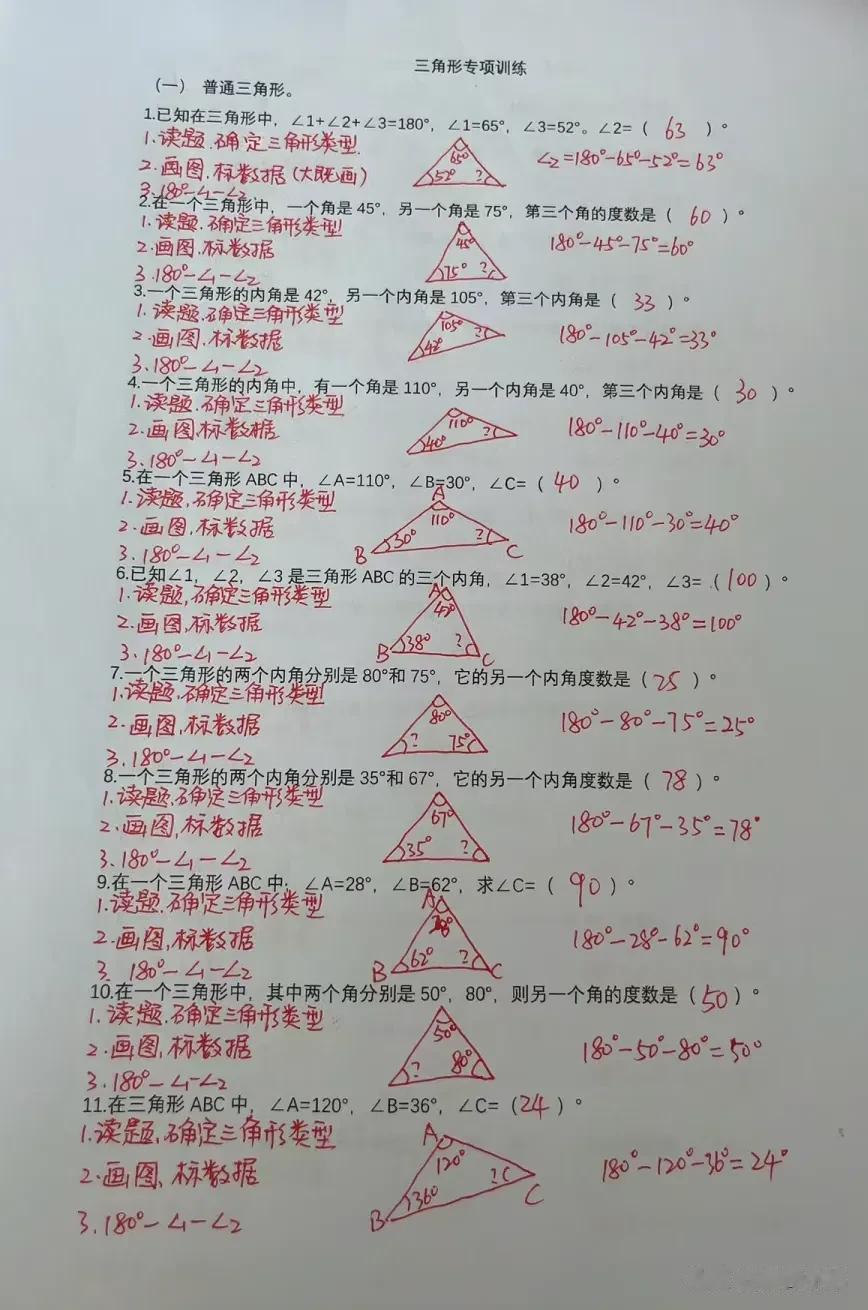 三角形专项训练
（一） 普通三角形。
1.已知在三角形中，∠1+∠2+∠3=180°，∠1=65°，∠3=52°。∠2=（ 63 ）°
1.读题.确定三角形类型.
65°
52° ?
∠2=180°-65°-52°=63°
2.画图.标数据(大既画)
3.180°-∠1-∠2
2.在一个三角形中，一个角是 45°，另一个角是 75°，第三个角的度数是（ 60 ）°
1.读题.确定三角形类型
45°
75° ?
180°-45°-75°=60°
2.画图.标数据
3.180°-∠1-∠2
3.一个三角形的内角是 42°，另一个内角是 105°，第三个内角是（ 33 ）°
1.读题.确定三角形类型
105°
42° ?
180°-105°-42°=33°
2.画图.标数据
3.180°-∠1-∠2
4.一个三角形的内角中，有一个角是 110°，另一个内角是 40°，第三个内角是（ 30 ）°
1.读题.确定三角形类型
110°
40° ?
180°-110°-40°=30°
2.画图.标数据
3.180°-∠1-∠2
5.在一个三角形 ABC 中，∠A=110°，∠B=30°，∠C=（ 40 ）°
1.读题,确定三角形类型
A
110°
B 30° ? C
180°-110°-30°=40°
2.画图.标数据
3.180°-∠1-∠2
6.已知∠1，∠2，∠3 是三角形 ABC 的三个内角，∠1=38°，∠2=42°，∠3=（100）°
1.读题,确定三角形类型
A
42°
B 38° ? C
180°-42°-38°=100°
2.画图,标数据
3.180°-∠1-∠2
7.一个三角形的两个内角分别是 80°和 75°，它的另一个内角度数是（25 ）°
1.读题,确定三角形类型
80°
? 75°
180°-80°-75°=25°
2.画图,标数据
3.180°-∠1-∠2
8.一个三角形的两个内角分别是 35°和 67°，它的另一个内角度数是（ 78 ）°
1.读题,确定三角形类型
67°
35° ?
180°-67°-35°=78°
2.画图,标数据
3.180°-∠1-∠2
9.在一个三角形 ABC 中，∠A=28°，∠B=62°，求∠C=（ 90 ）°
1.读题.确定三角形类型
A
28°
B 62° ? C
180°-28°-62°=90°
2.画图,标数据
3. 180°-∠1-∠2
10.在一个三角形中，其中两个角分别是 50°，80°，则另一个角的度数是（50）°
1.读题.确定三角形类型
50°
? 80°
180°-50°-80°=50°
2.画图,标数据
3.180°-∠1-∠2
11.在三角形 ABC 中，∠A=120°，∠B=36°，∠C=（24 ）°
1.读题,确定三角形类型
A
120°
B 36° ? C
180°-120°-36°=24°
2.画图,标数据
3.180°-∠1-∠2